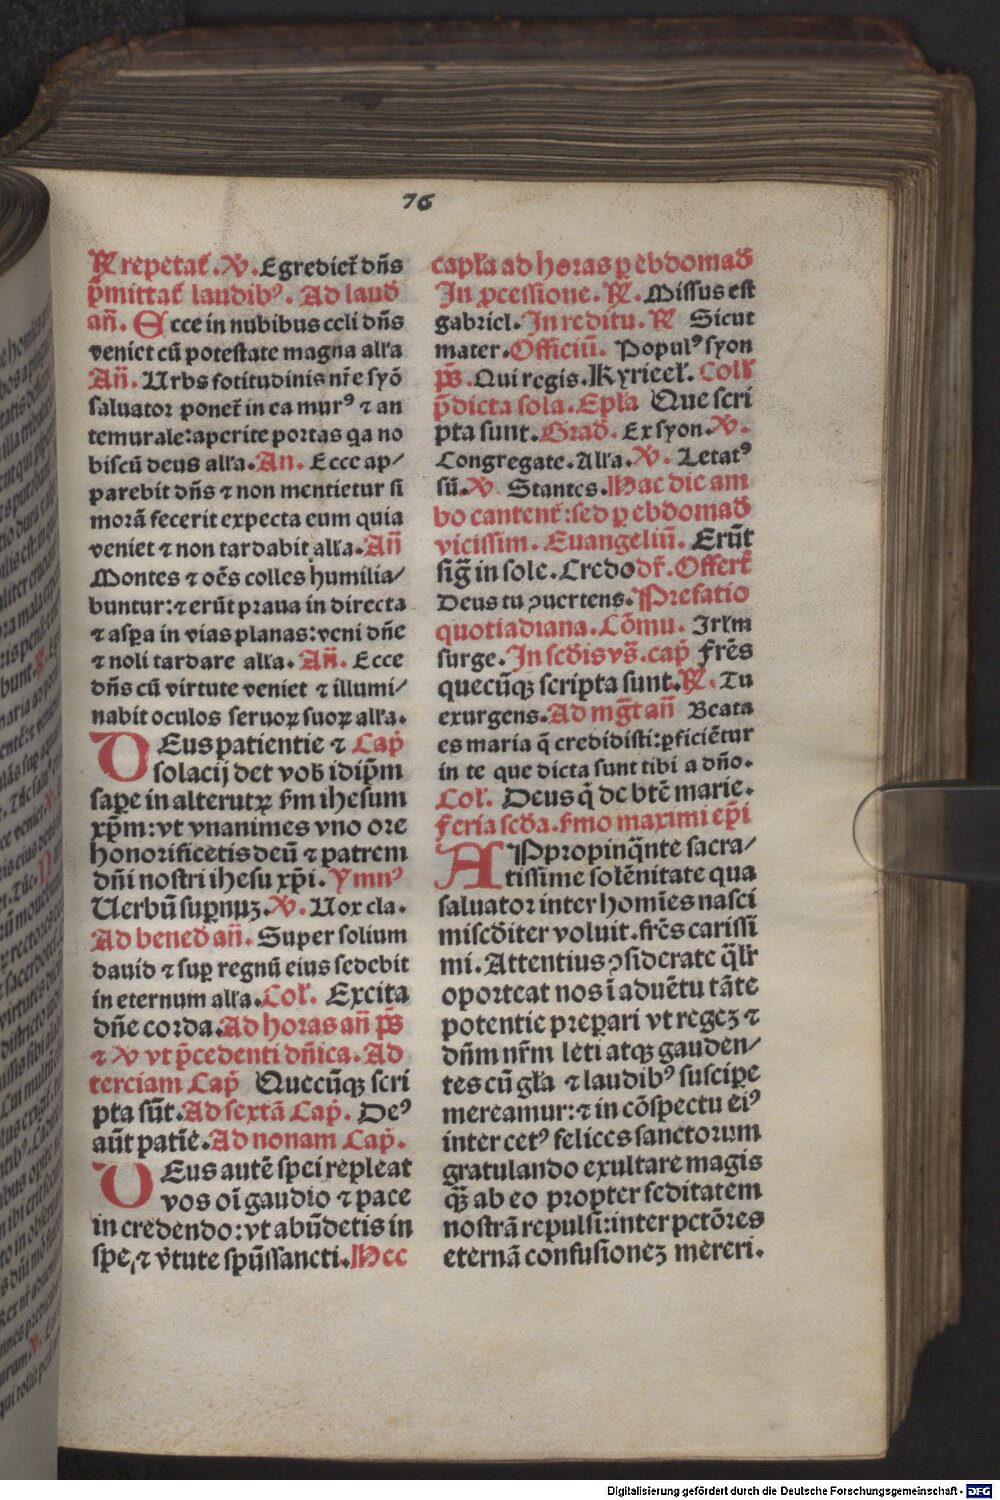 76
R repetat̃. V̾. Egredict̃ dñs
p̃mittat̃ laudibꝰ. Ad laud̃
añ. Ecce in nubibus celi dñs
veniet cũ potestate magna alľa
Añ. Urbs fotitudinis nr̃e syõ
saluator ponet̃ in ea murꝰ ⁊ an
temurale: aperite portas qa no
biscũ deus alľa. An. Ecce ap/
parebit dñs ⁊ non mentietur si
morã fecerit expecta eum quia
veniet ⁊ non tardabit alľa. Añ
Montes ⁊ oẽs colles humilia/
buntur: ⁊ erũt praua in directa
⁊ asꝑa in vias planas: veni dñe
⁊ noli tardare alľa. Añ. Ecce
dñs cũ virtute veniet ⁊ illumi/
nabit oculos seruoꝝ suoꝝ alľa.
DEus patientie ⁊ Cap̃
solacij det vob̃ idip̃m
saꝑe in alterutꝝ ẜm ihesum
xp̃m: vt vnanimes vno ore
honorificetis deũ ⁊ patrem
dñi nostri ihesu xp̃i. Ymnꝰ
Uerbũ suꝑnuꝫ. V̾. Uox cla.
Ad bened̃ añ. Super solium
dauid ⁊ suꝑ regnũ eius sedebit
in eternum alľa. Col̃. Excita
dñe corda. Ad horas añ p̃s
⁊ V̾ vt p̃cedenti dñica. Ad
terciam Cap̃ Quecũqꝫ scri
pta sũt. Ad sextã Cap̃. Deꝰ
aũt patiẽ. Ad nonam Cap̃.
DEus autẽ spei repleat
vos oĩ gaudio ⁊ pace
in credendo: vt abũdetis in
spe, ⁊ ṽtute sp̃ũssancti. Hec
capľa ad horas ꝑ ebdomad̃
In ꝓcessione. R. Missus est
gabriel. In reditu. R Sicut
mater. Officiũ. Populꝰ syon
p̃s. Qui regis. Kyrieel̃. Coll̃
p̃dicta sola. Epľa Que scri
pta sunt. Grad̃. Ex syon. V̾.
Congregate. Alľa. V̾. Letatꝰ
sũ. V̾ Stantes. Hac die am
bo cantent̃: sed ꝑ ebdomad̃
vicissim. Euangeliũ. Erũt
sig̃ in sole. Credo dr̃. Offert̃
Deus tu ꝯuertens. Prefatio
quotiadiana. Cõmu. Jrľm
surge. In scd̃is vs̃. cap̃ frẽs
quecũqꝫ scripta sunt. R. Tu
exurgens. Ad mg̃t añ Beata
es maria q̃ credidisti: ꝑficiẽtur
in te que dicta sunt tibi a dño.
Col̃. Deus q̃ de btẽ marie.
feria scd̃a. ẜmo maximi ep̃i
APpropinq̃nte sacra/
tissime solẽnitate qua
saluator inter homĩes nasci
miscd̃iter voluit. frẽs carissi
mi. Attentius ꝯsiderate q̃lr̃
oporteat nos ĩ aduẽtu tãte
potentie preꝑari vt regeꝫ ⁊
dñm nr̃m leti atqꝫ gauden/
tes cũ gľa ⁊ laudibꝰ suscipe
mereamur: ⁊ in cõspectu eiꝰ
inter cetꝰ felices sanctorum
gratulando exultare magis
q̃ꝫ ab eo propter feditatem
nostrã repulsi: inter pctõres
eternã confusioneꝫ mereri.
Digitalisierung gefördert durch die Deutsche Forschungsgemeinschaft - DFG